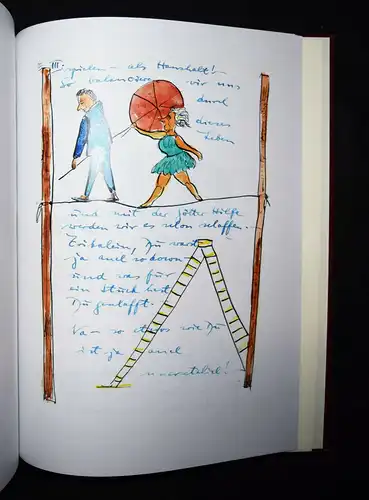 III.
spielen – als Haushalt!
So balancieren wir uns
durch
dieses
Leben
und mit der Götter Hilfe
werden wir es schon schaffen.
Du warst
ja auch so
und was für
ein Stück hast
Du geschafft.
Na – so etwas wie Du
ist ja auch
unersetzlich!